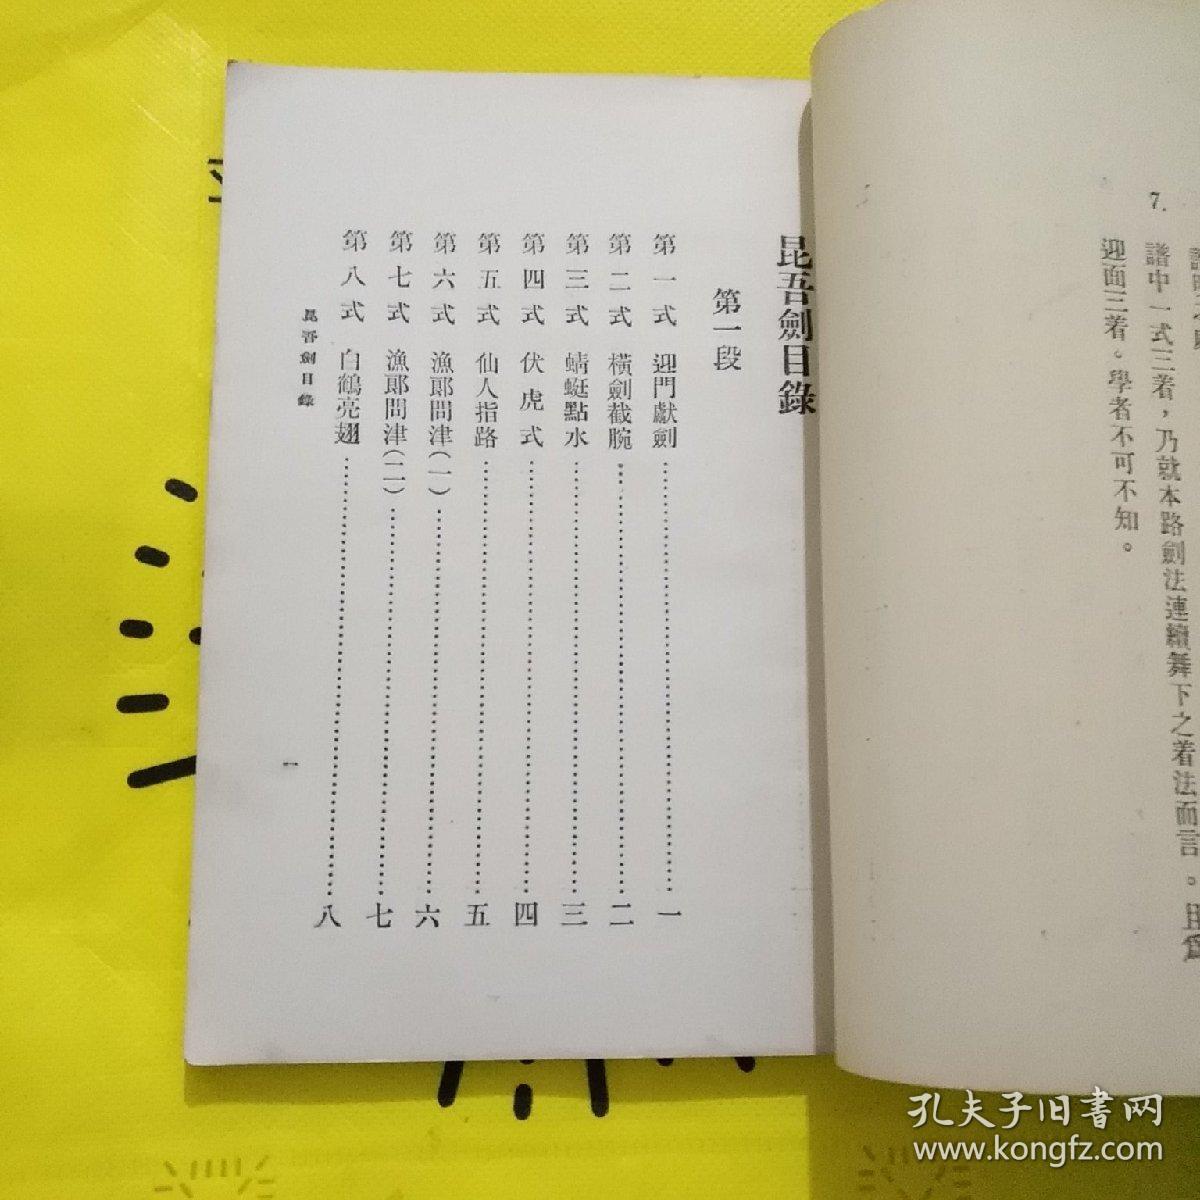 7.
譜中一式三着，乃就本路劍法連續舞下之着法而言。且爲
迎面三着。學者不可不知。
昆吾劍目錄
第一段
第一式 迎門獻劍……一
第二式 橫劍截腕……二
第三式 蜻蜓點水……三
第四式 伏虎式……四
第五式 仙人指路……五
第六式 漁郎問津（一）……六
第七式 漁郎問津（二）……七
第八式 白鶴亮翅……八
昆吾劍目錄
一
孔夫子旧书网
www.kongfz.com